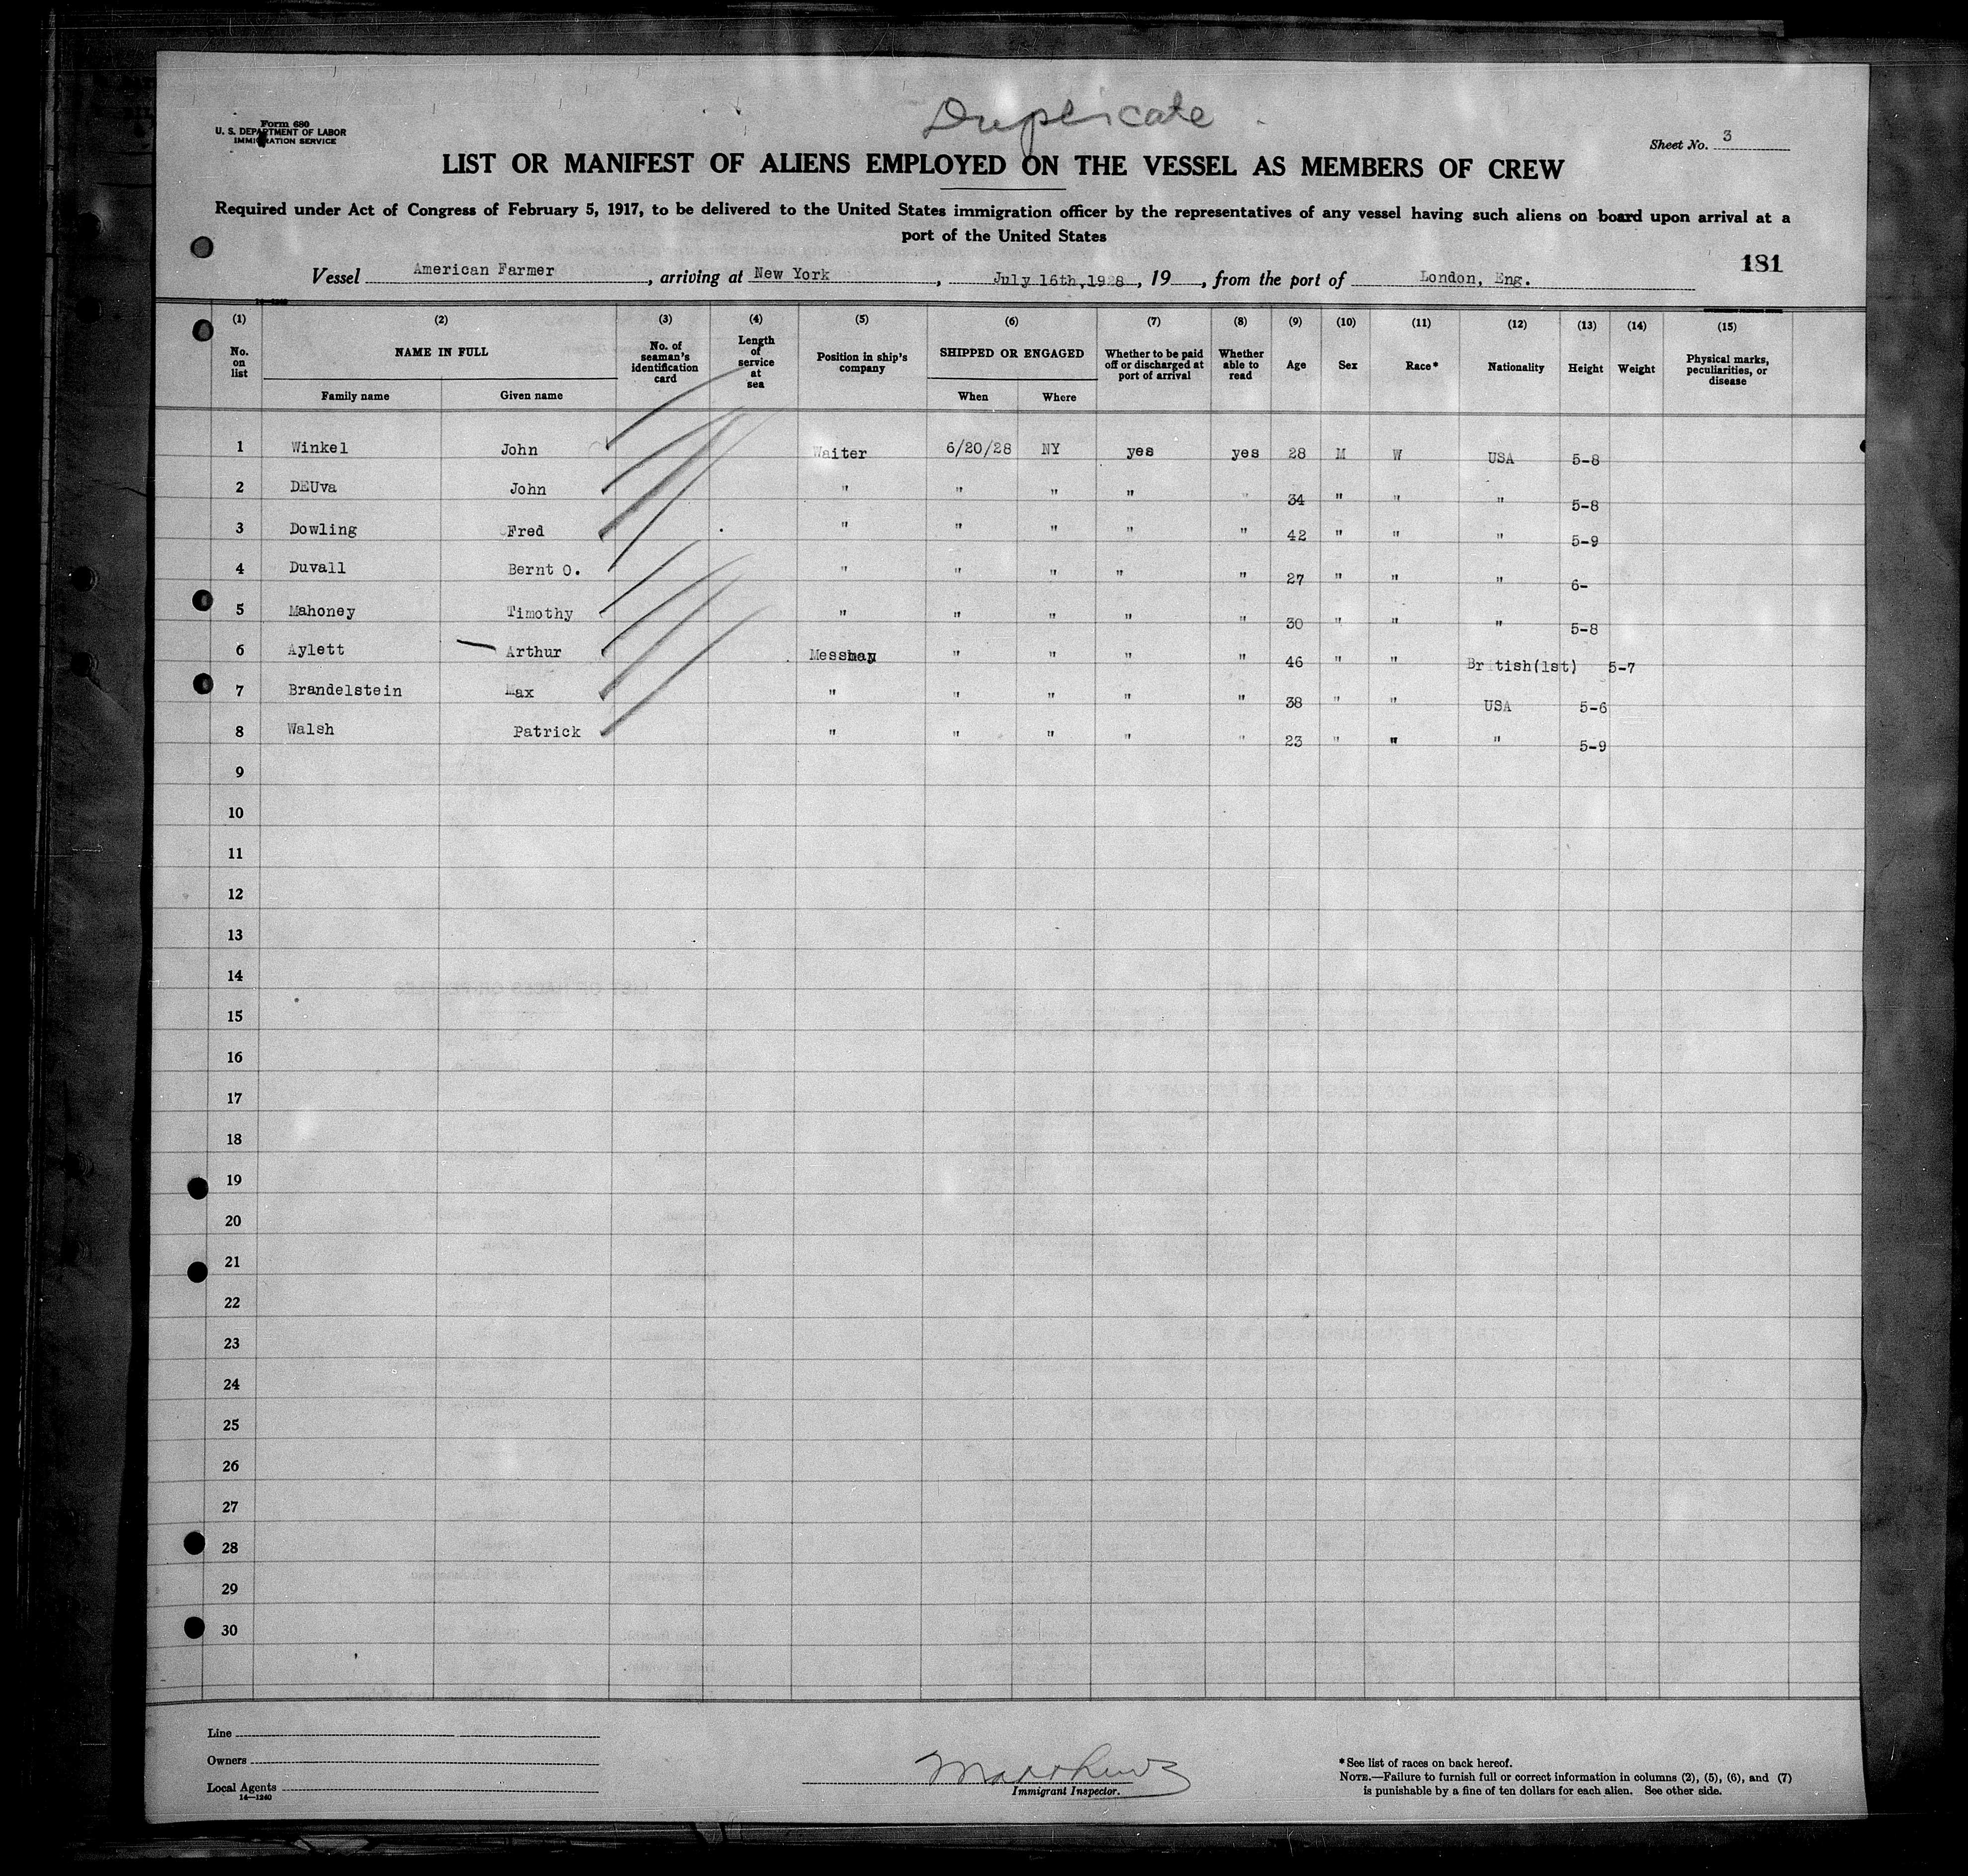 Duplicate
Form 680
U. S. DEPARTMENT OF LABOR
IMMIGRATION SERVICE
Sheet No. 3
LIST OR MANIFEST OF ALIENS EMPLOYED ON THE VESSEL AS MEMBERS OF CREW
Required under Act of Congress of February 5, 1917, to be delivered to the United States immigration officer by the representatives of any vessel having such aliens on board upon arrival at a
port of the United States
181
Vessel American Farmer, arriving at New York, July 16th,1928, 19, from the port of London, Eng.
(1) (2) (3) (4) (5) (6) (7) (8) (9) (10) (11) (12) (13) (14) (15)
No. on list NAME IN FULL No. of seaman's identification card Length of service at sea Position in ship's company SHIPPED OR ENGAGED Whether to be paid off or discharged at port of arrival Whether able to read Age Sex Race* Nationality Height Weight Physical marks, peculiarities, or disease
Family name Given name When Where
1 Winkel John Waiter 6/20/28 NY yes yes 28 M W USA 5-8
2 DEUva John " " " " " 34 " " " 5-8
3 Dowling Fred " " " " " 42 " " " 5-9
4 Duvall Bernt O. " " " " " 27 " " " 6-
5 Mahoney Timothy " " " " " 30 " " " 5-8
6 Aylett Arthur Messman " " " " 46 " " British(1st) 5-7
7 Brandelstein Max " " " " " 38 " " USA 5-6
8 Walsh Patrick " " " " " 23 " " " 5-9
9
10
11
12
13
14
15
16
17
18
19
20
21
22
23
24
25
26
27
28
29
30
Line
Owners
Local Agents
14—1240
Matthews
Immigrant Inspector.
*See list of races on back hereof.
NOTE.—Failure to furnish full or correct information in columns (2), (5), (6), and (7)
is punishable by a fine of ten dollars for each alien. See other side.